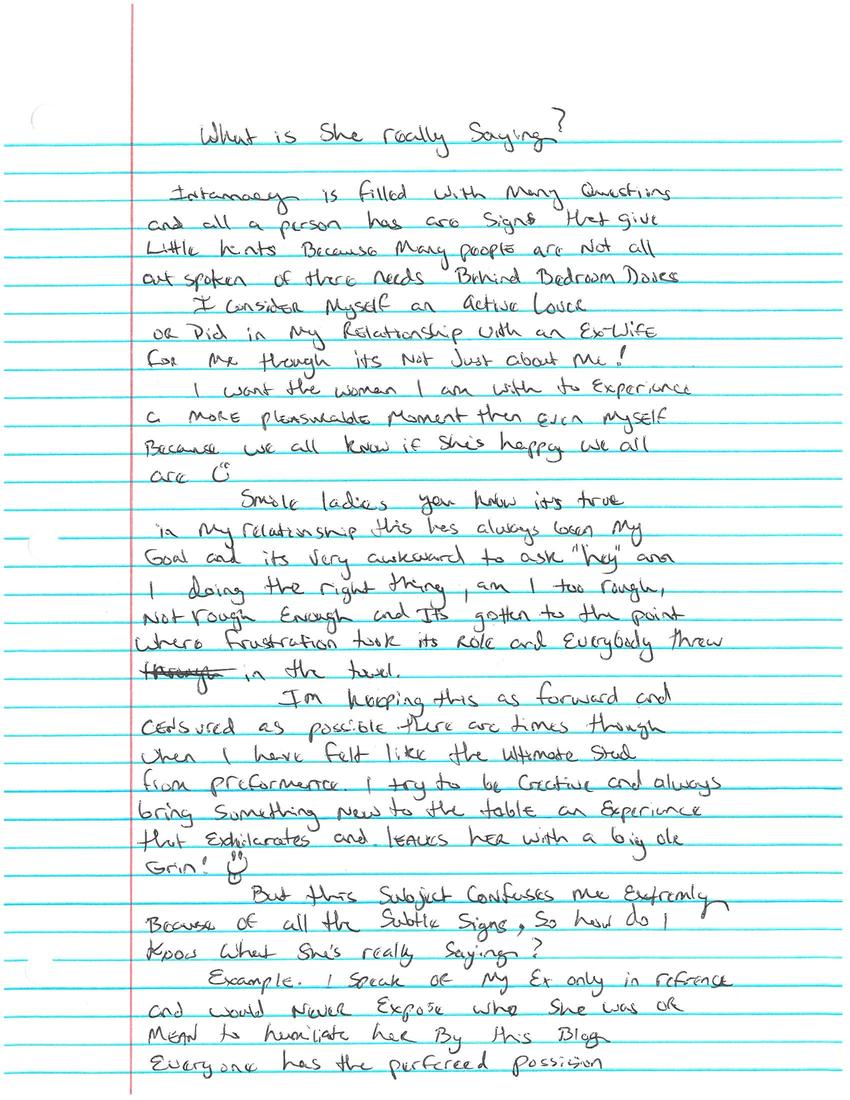 What is She really Saying?
Intamacy is filled with Many Questions
and all a person has are Signs that give
Little hints Because Many people are Not all
out spoken of there needs Behind Bedroom Doors
I Consider Myself an active Lover
OR Did in My Relationship with an Ex-Wife
for me though its Not Just about Me!
I want the woman I am with to Experience
a MORE pleasurable Moment then Even Myself
Because we all know if She's happy we all
are
Smile ladies you know it's true
in My relationship this has always been My
Goal and its Very awkward to ask "hey" am
I doing the right thing, am I too rough,
Not rough Enough and It's gotten to the point
where frustration took its Role and Everybody threw
through in the towel.
I'm keeping this as forward and
Censured as possible there are times though
when I have felt like the Ultimate Stud
from preformence. I try to be Creative and always
bring Something New to the table an Experience
that Exhilarates and LEAVES HER with a big ole
Grin!
But this Subject Confuses me Extremly
Because of all the Subtle Signs, So how do I
Know what She's really Saying?
Example. I Speak of My Ex only in refrence
and would Never Expose who She was OR
MEAN to humiliate her By this Blog
Everyone has the perfereed possision